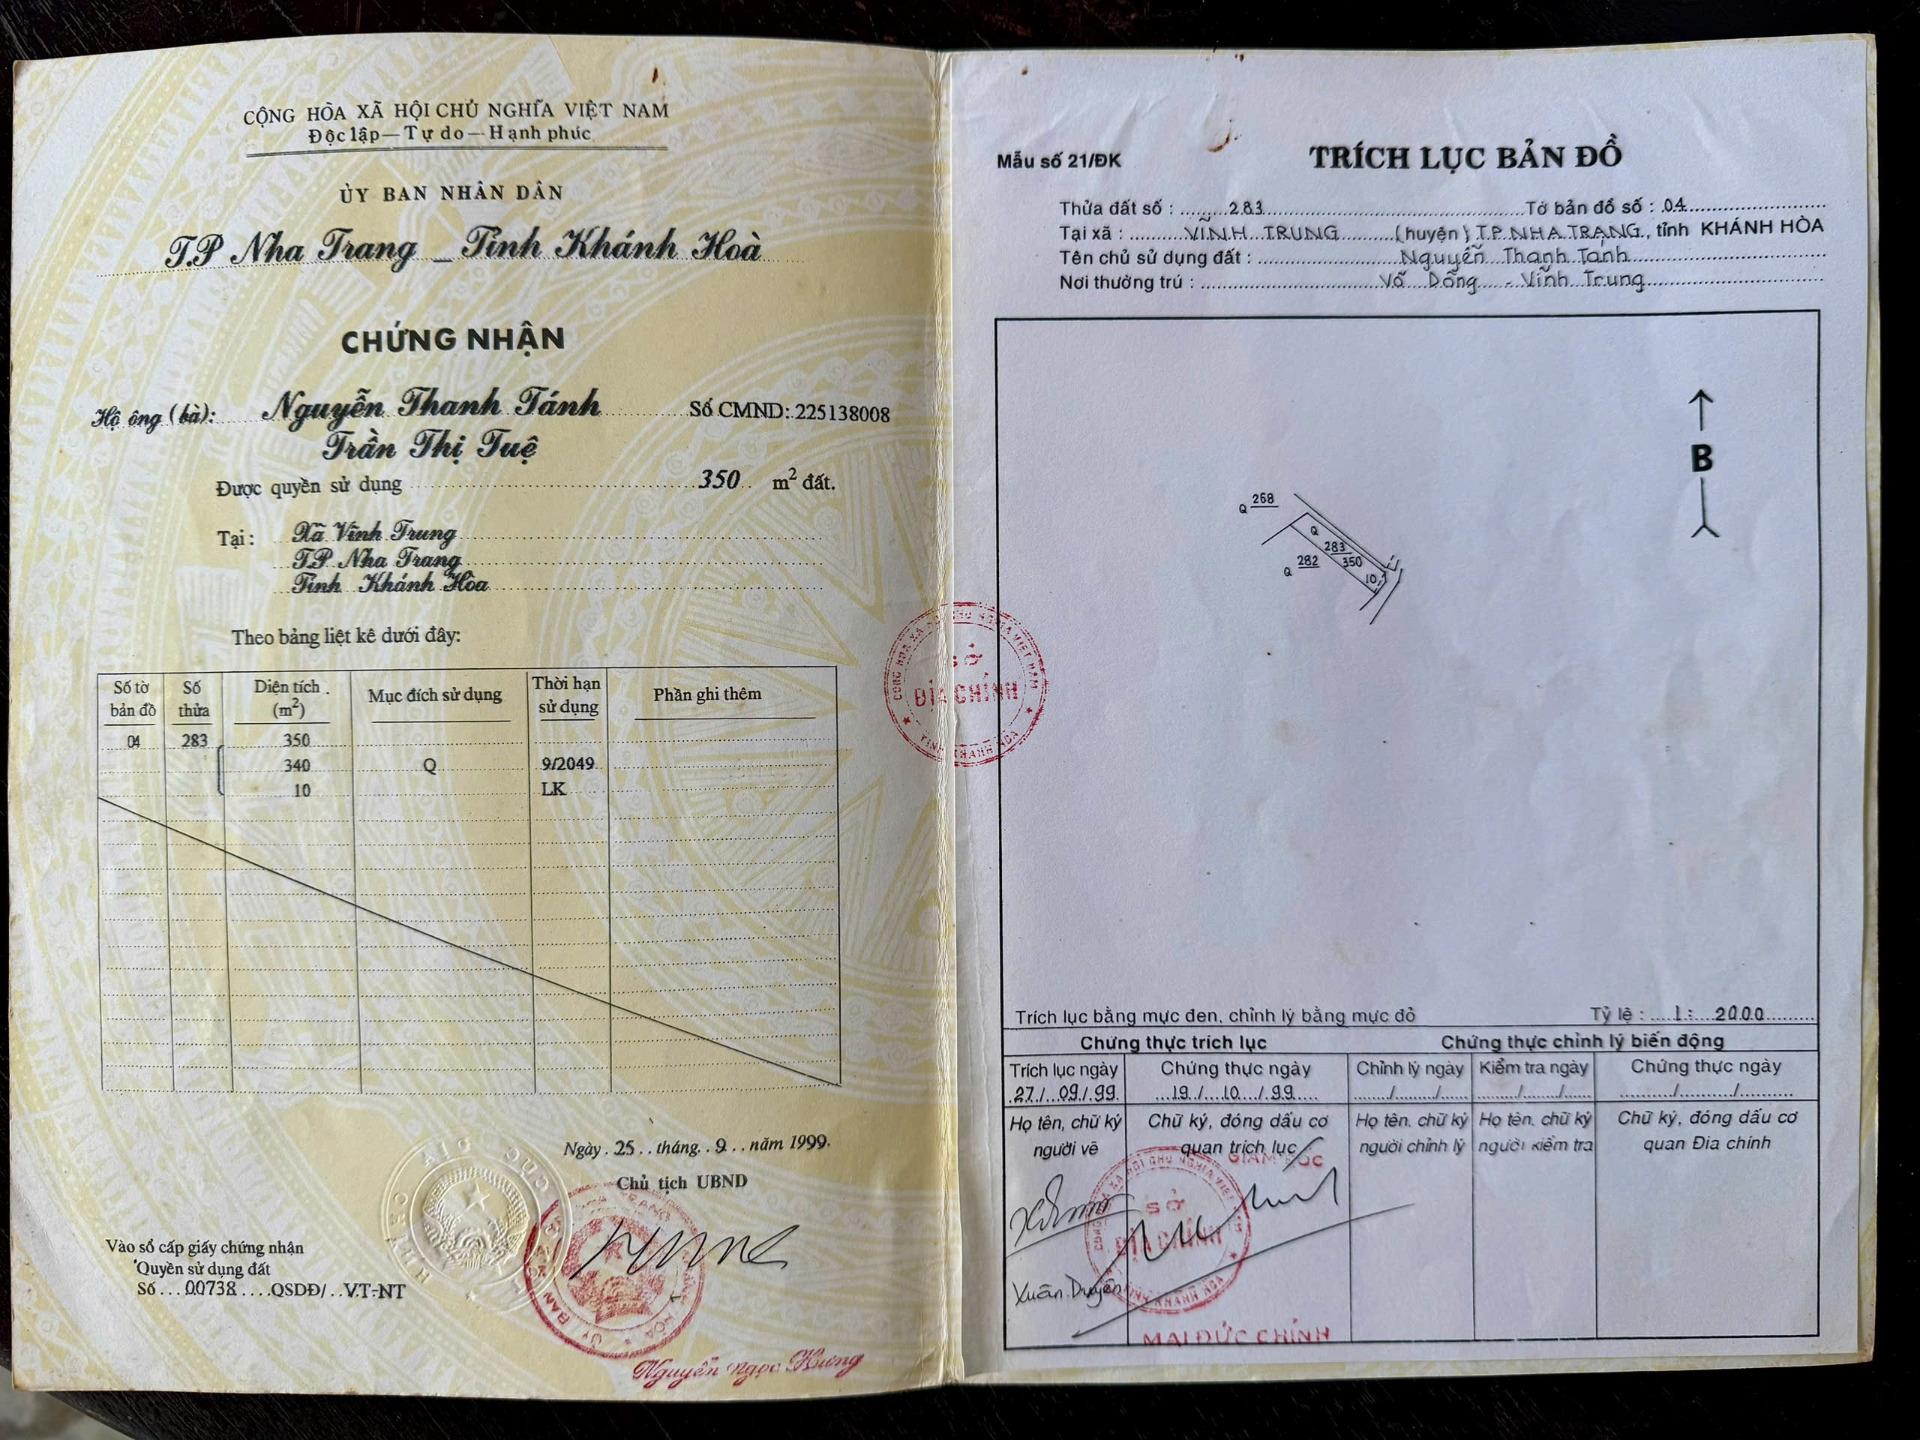 CỘNG HÒA XÃ HỘI CHỦ NGHĨA VIỆT NAM
Độc lập — Tự do — Hạnh phúc
ỦY BAN NHÂN DÂN
T.P Nha Trang _ Tỉnh Khánh Hoà
CHỨNG NHẬN
Hộ ông (bà): Nguyễn Thanh Tánh Số CMND: 225138008
Trần Thị Tuệ
Được quyền sử dụng 350 m2 đất.
Tại: Xã Vĩnh Trung
T.P Nha Trang
Tỉnh Khánh Hòa
Theo bảng liệt kê dưới đây:
Số tờ bản đồ Số thửa Diện tích (m2) Mục đích sử dụng Thời hạn sử dụng Phần ghi thêm
04 283 350
340 Q 9/2049
10 LK
Ngày 25 tháng 9 năm 1999.
Chủ tịch UBND
Vào sổ cấp giấy chứng nhận
Quyền sử dụng đất
Số 00738 QSDĐ/ VT-NT
Nguyễn Ngọc Hưng
SỞ
ĐỊA CHÍNH
Mẫu số 21/ĐK
TRÍCH LỤC BẢN ĐỒ
Thửa đất số : 283 Tờ bản đồ số : 04
Tại xã : VĨNH TRUNG (huyện) T.P. NHA TRANG, tỉnh KHÁNH HÒA
Tên chủ sử dụng đất : Nguyễn Thanh Tánh
Nơi thường trú : Võ Dõng - Vĩnh Trung
B
Q 268
Q
283
350
Q 282
10
Trích lục bằng mực đen, chỉnh lý bằng mực đỏ Tỷ lệ : 1: 2000
Chứng thực trích lục Chứng thực chỉnh lý biến động
Trích lục ngày Chứng thực ngày Chỉnh lý ngày Kiểm tra ngày Chứng thực ngày
27/ 09/ 99 19/ 10 / 99 / / / / / /
Họ tên, chữ ký Chữ ký, đóng dấu cơ Họ tên, chữ ký Họ tên, chữ ký Chữ ký, đóng dấu cơ
người vẽ quan trích lục người chỉnh lý người kiểm tra quan Địa chính
GIÁM ĐỐC
SỞ
ĐỊA CHÍNH
Xuân Duyên
MAI ĐỨC CHÍNH